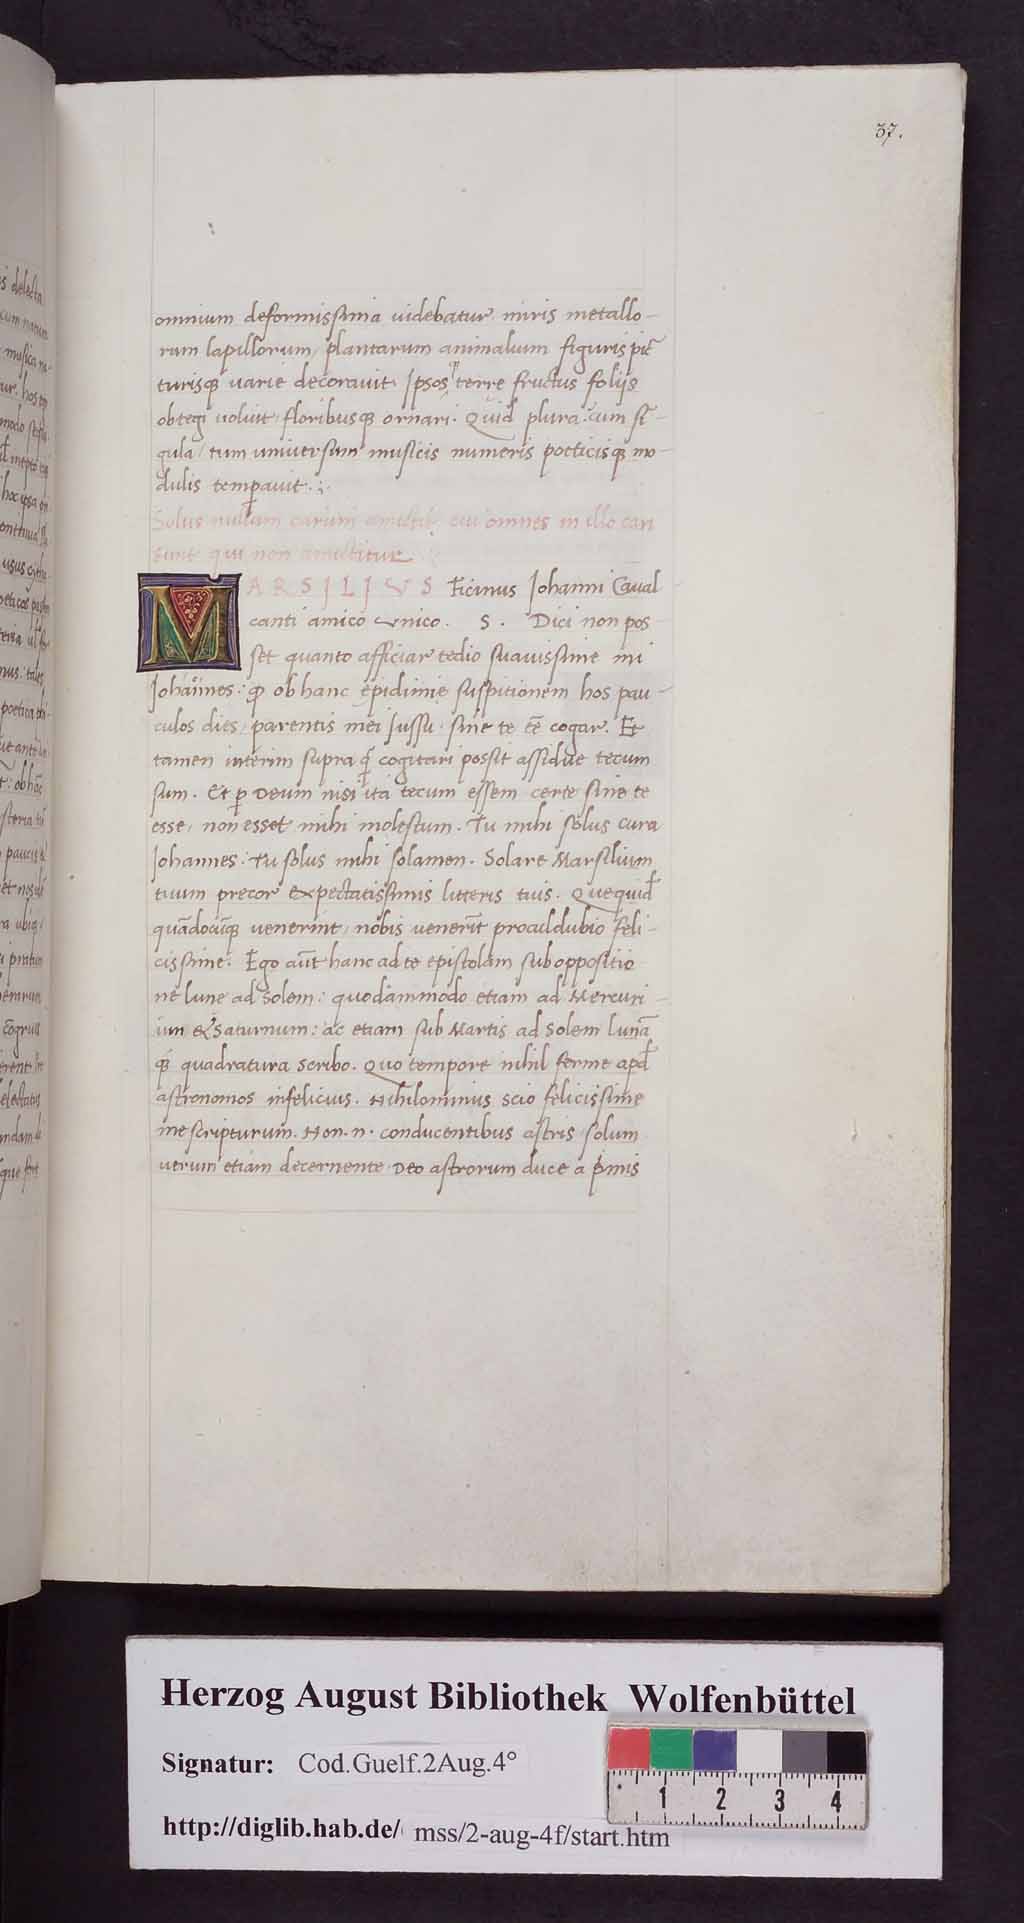 37.
omnium deformissima uidebatur miris metallo-
rum lapillorum, plantarum animalium figuris pic̄
turisqꝫ uarie decorauit. Ipsos qȝ terre fructus folijs
obtegi uoluit, floribusqꝫ ornari. Quid plura. cum si-
gula, tum uniuersum musicis numeris poeticisqꝫ mo-
dulis temꝑauit.
Solus nullum carum amittit, cui omnes in illo cari
sunt qui non amittitur
MARSILIVS Ficinus Johanni Caual
canti amico vnico. S. Dici non pos
set quanto afficiar tedio suauissime mi
Johannes: ꝙ ob hanc epidimie suspitionem hos pau-
culos dies, parentis mei Jussu, sine te eē cogar. Et
tamen interim supra ꝙ̄ cogitari possit assidue tecum
sum. Et ꝑ Deum nisi ita tecum essem certe sine te
esse, non esset mihi molestum. Tu mihi solus cura
Johannes: Tu solus mihi solamen. Solare Marsilium
tuum precor expectatissimis litteris tuis. Quequid
quādocūqꝫ uenerint, nobis uenerīt proculdubio feli-
cissime. Ego aūt hanc ad te epistolam sub oppositio
ne lune ad Solem: quodammodo etiam ad Mercuri-
um & Saturnum: ac etiam sub Martis ad Solem lunā
qꝫ quadratura scribo. Quo tempore nihil ferme apd̄
astronomos infelicius. Nihilominus scio felicissime
me scripturum. Non .n. conducentibus astris solum
uerum etiam decernente Deo astrorum duce a p̍mis
Herzog August Bibliothek Wolfenbüttel
Signatur: Cod.Guelf.2Aug.4°
http://diglib.hab.de/ mss/2-aug-4f/start.htm
1 2 3 4